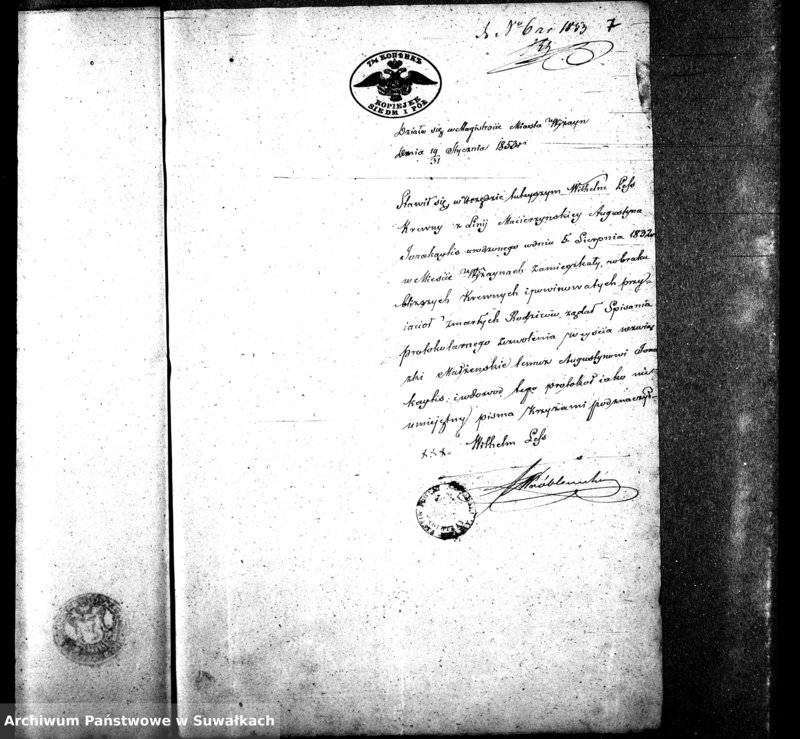 do No 6 r. 1853 7
7½ КОПѢЕКЪ
KOPIEJEK
SIEDM I PÓŁ
Działo się w Magistracie Miasta Wyżayn
Dnia 19/31 Stycznia 1853 r
Stawił się w Urzędzie tuteyszym Wilhelm Less
Krewny z Linij Macierzynskiey Augustyna
Jonakaytis urodzonego w dniu 5. Sierpnia 1832 r
w Miescie Wyżaynach zamieszkały, w braku
bliższych Krewnych i powinowatych przy-
iacioł zmarłych Rodziców, żądał Spisania
protokolarnego zezwolenia weyścia w związ
zki Małżenskie temuż Augustynowi Jona
kaytis, i w dowod tego protokoł iako nie
umieiętny pisma Krzyżami podznaczył.-
+++ Wilhelm Less
Wróblewski
Archiwum Państwowe w Suwałkach